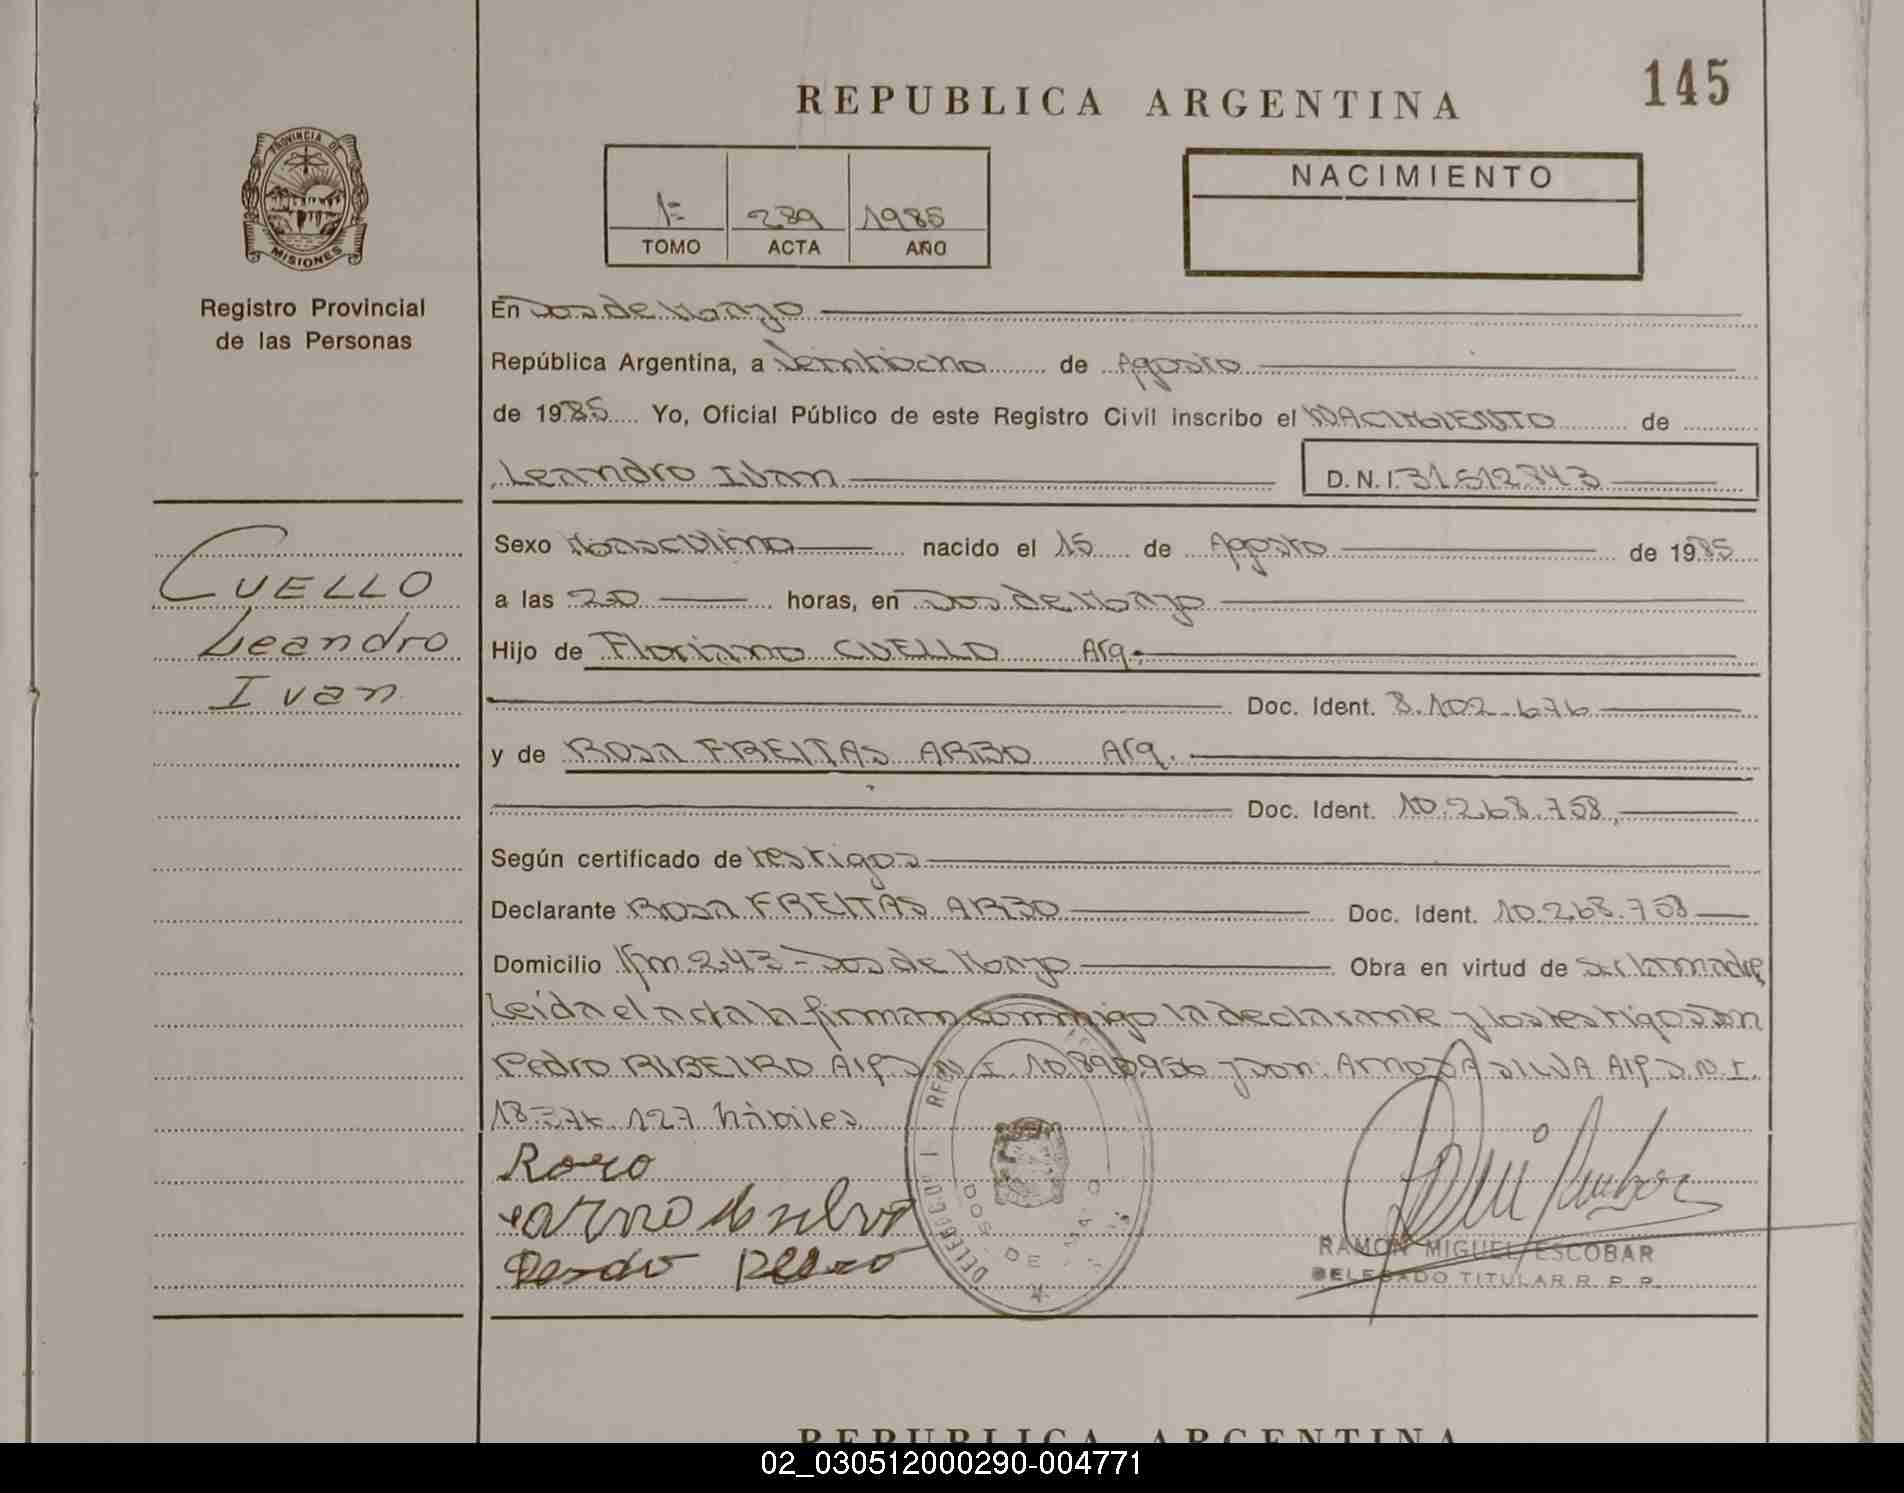 145
REPUBLICA ARGENTINA
PROVINCIA DE
MISIONES
1º
289
1985
TOMO
ACTA
AÑO
NACIMIENTO
Registro Provincial
de las Personas
En Dos de Mayo
República Argentina, a Veintiocho de Agosto
de 1985 Yo, Oficial Público de este Registro Civil inscribo el NACIMIENTO de
Leandro Ivan
D. N. I. 31.512.743
CUELLO
Leandro
Ivan
Sexo Masculino nacido el 15 de Agosto de 1985
a las 20 horas, en Dos de Mayo
Hijo de Floriano CUELLO Arg.
Doc. Ident. 8.102.676
y de Rosa FREITAS ARBO Arg.
Doc. Ident. 10.268.758
Según certificado de testigos
Declarante Rosa FREITAS ARBO Doc. Ident. 10.268.758
Domicilio Km. 243 - Dos de Mayo Obra en virtud de Ser la madre
Leida el acta la firman conmigo la declarante y los testigos Don
Pedro RIBEIRO Arg D.N.I. 10.890.950 y Don: ARNO DA SILVA Arg D.N.I.
18. 127 hábiles
DOS DE
RAMON MIGUEL ESCOBAR
DELEGADO TITULAR R. P. P.
REPUBLICA ARGENTINA
02_030512000290-004771